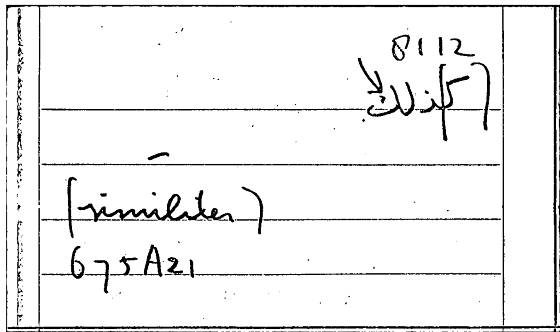 8112
[ك]ذلك
–
[similiter]
675A21